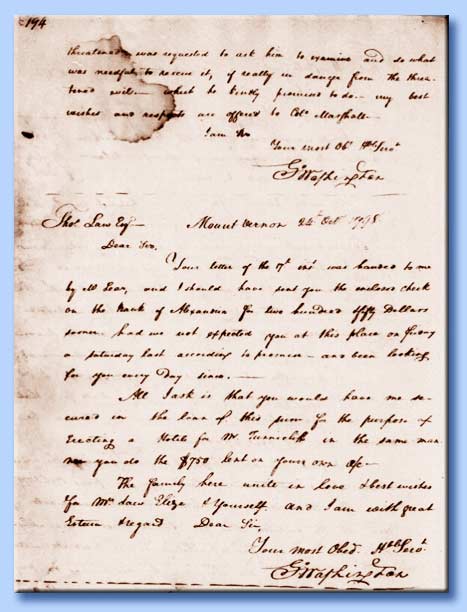 194
threatened - was requested to ask him to examine and do what
was needful to rescue it, if really in danger from the threa-
tened evil - which he kindly promised to do - my best
wishes and respects are offered to Colo. Marshall -
I am &c
Your most Obt. Hble Servt
Go Washington
Thos. Law Esq -
Mount Vernon 24th Oct 1798
Dear Sir,
Your letter of the 7th inst was handed to me
by Mr Lear, and I should have sent you the enclosed check
on the Bank of Alexandria for two hundred fifty Dollars
sooner had we not expected you at this place on friday
or saturday last according to promise - and been looking
for you every day since. -
All I ask is that you would have me se-
cured in the loan of this sum for the purpose of
Erecting a Hotel for Mr. Tunnicliff in the same man
ner you do the $750 lent on your own a/c -
The family here unite in love & best wishes
for Mrs Law Eliza & Yourself and I am with great
Esteem & regard Dear Sir,
Your most Obed. Hble Servt.
Go Washington